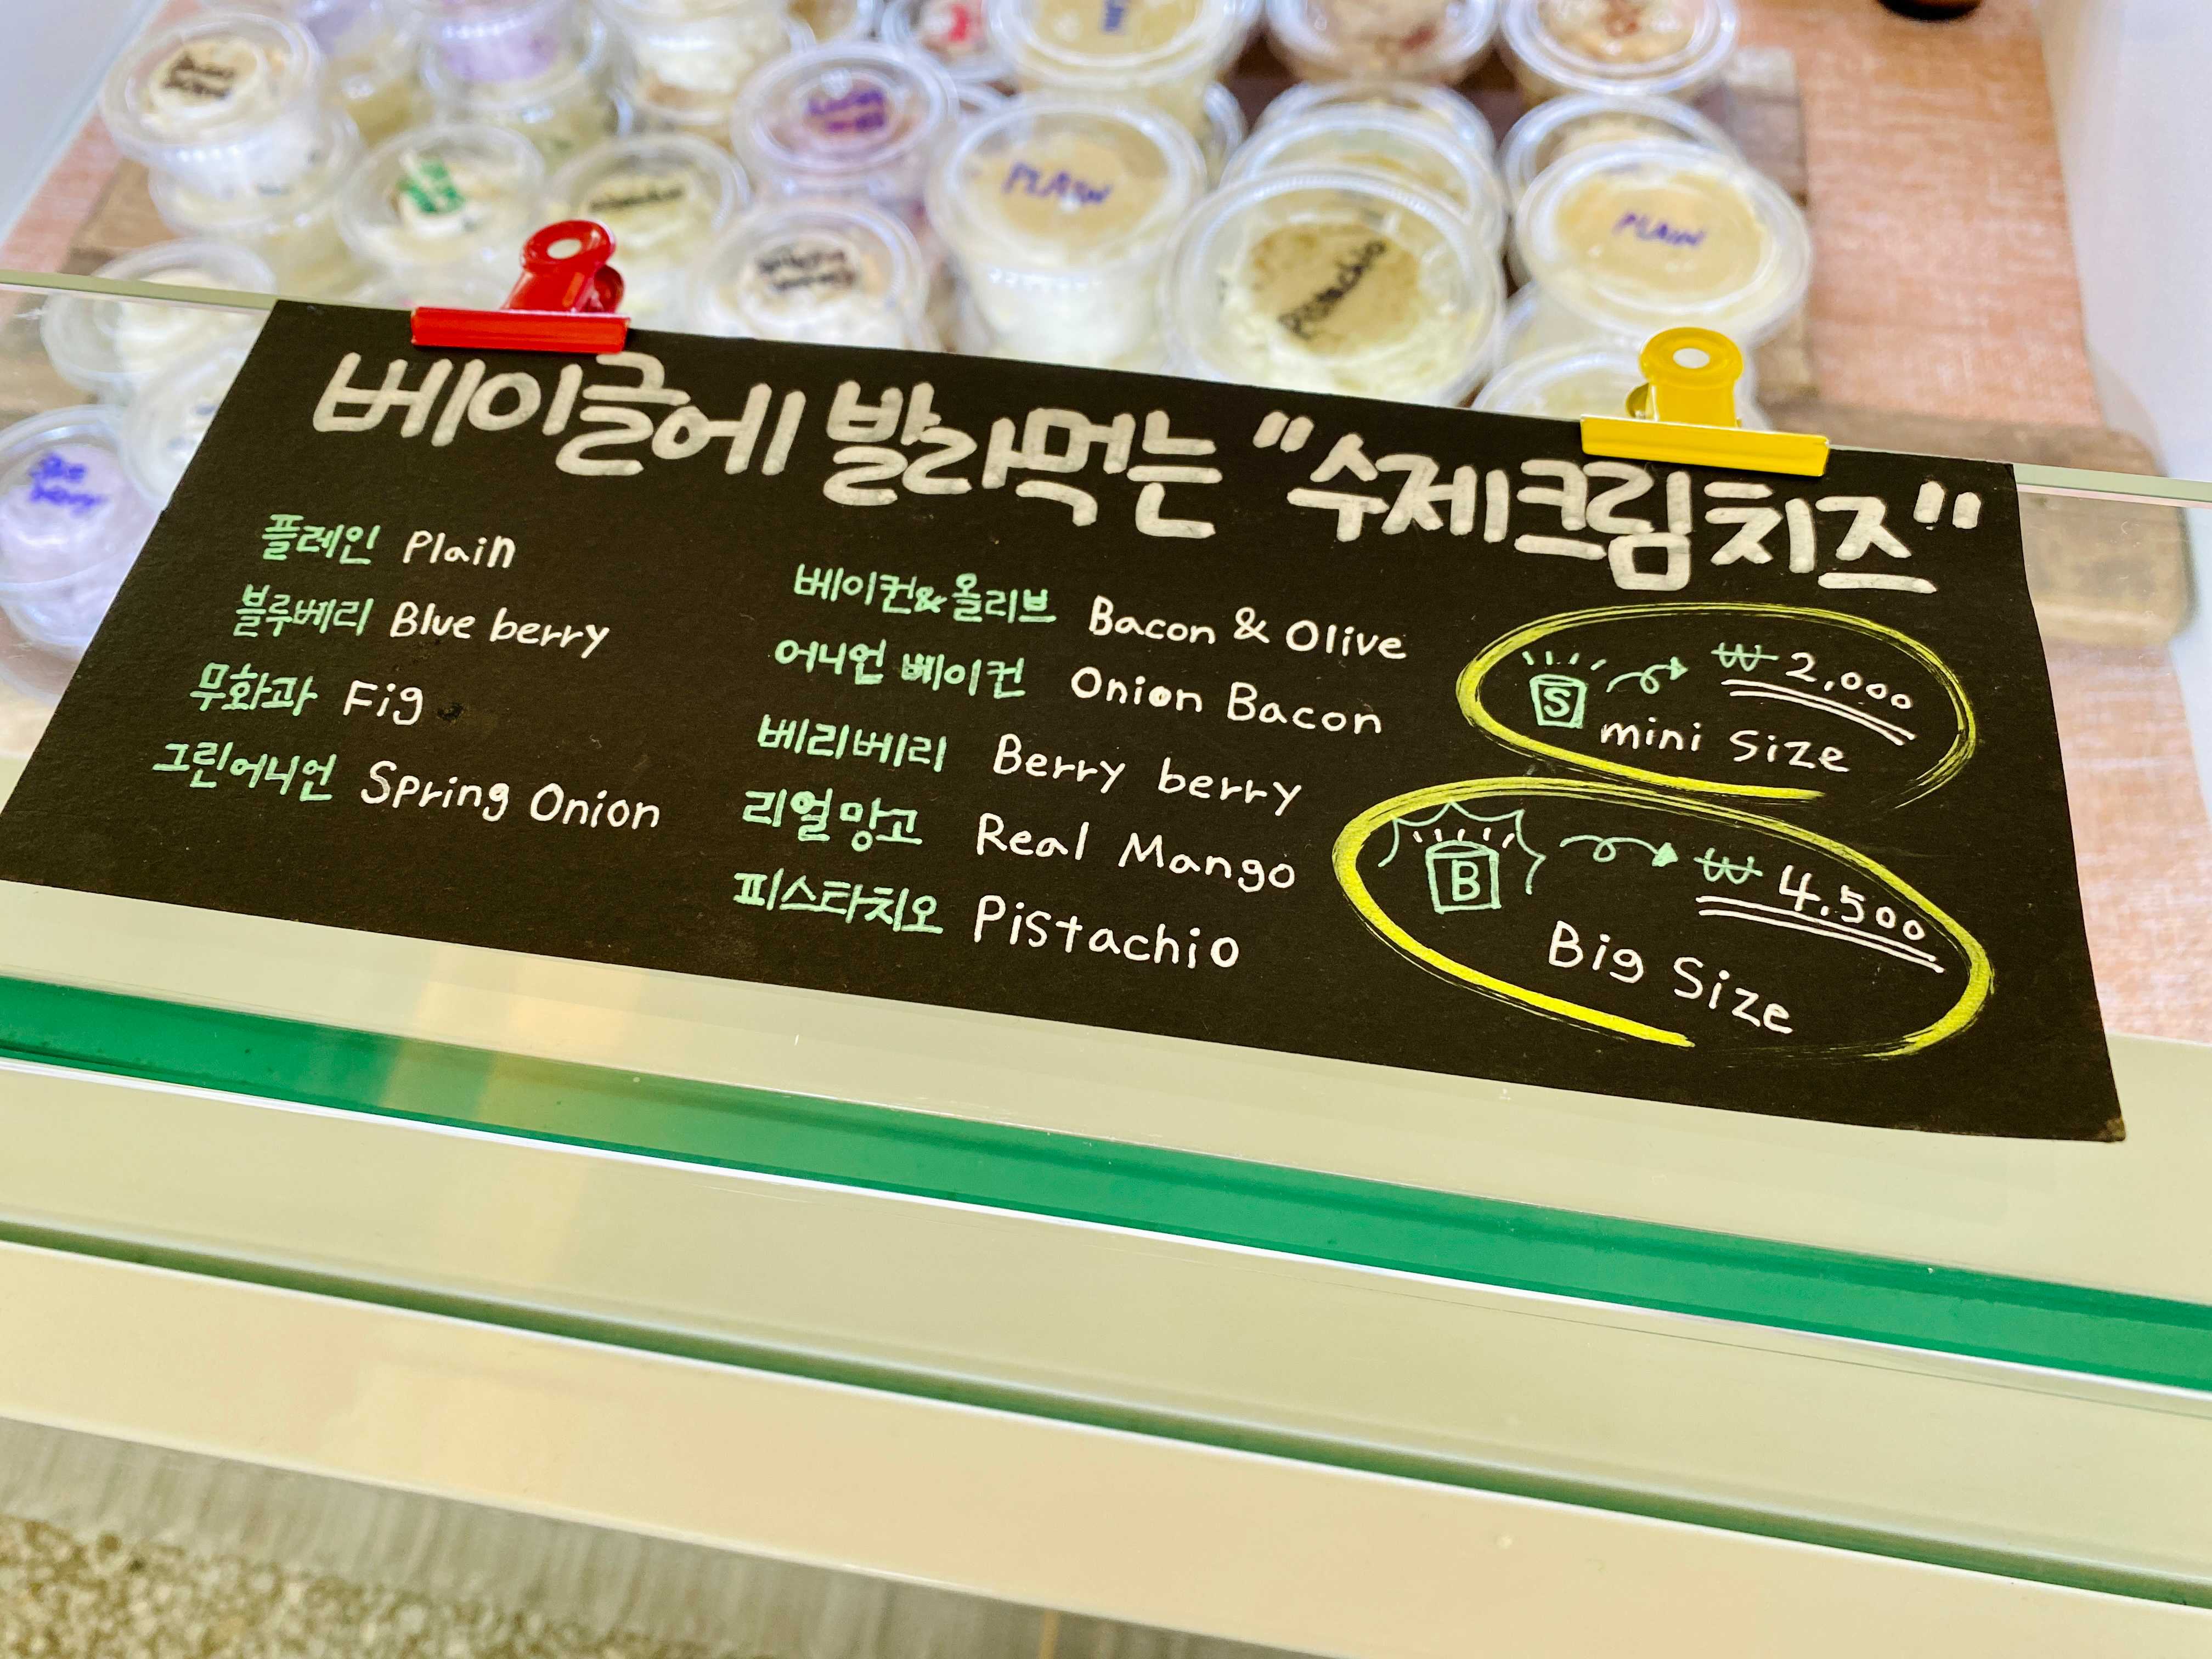 베이글에 발라먹는 "수제크림치즈"
플레인 Plain
블루베리 Blue berry
무화과 Fig
그린어니언 Spring Onion
베이컨&올리브 Bacon & Olive
어니언 베이컨 Onion Bacon
베리베리 Berry berry
리얼망고 Real Mango
피스타치오 Pistachio
S ₩2,000
mini size
B ₩4,500
Big Size
PLAIN
Pistachio
PLAIN